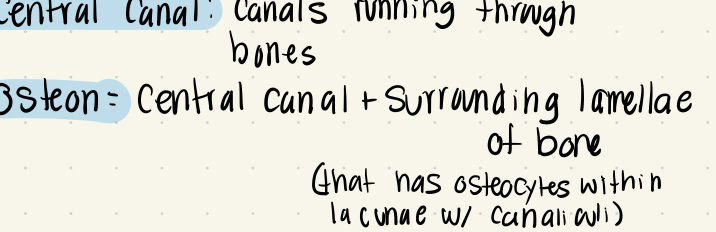 Central Canal: Canals running through
bones
Osteon= Central canal + Surrounding lamellae
of bone
(that has osteocytes within
lacunae w/ canaliculi)